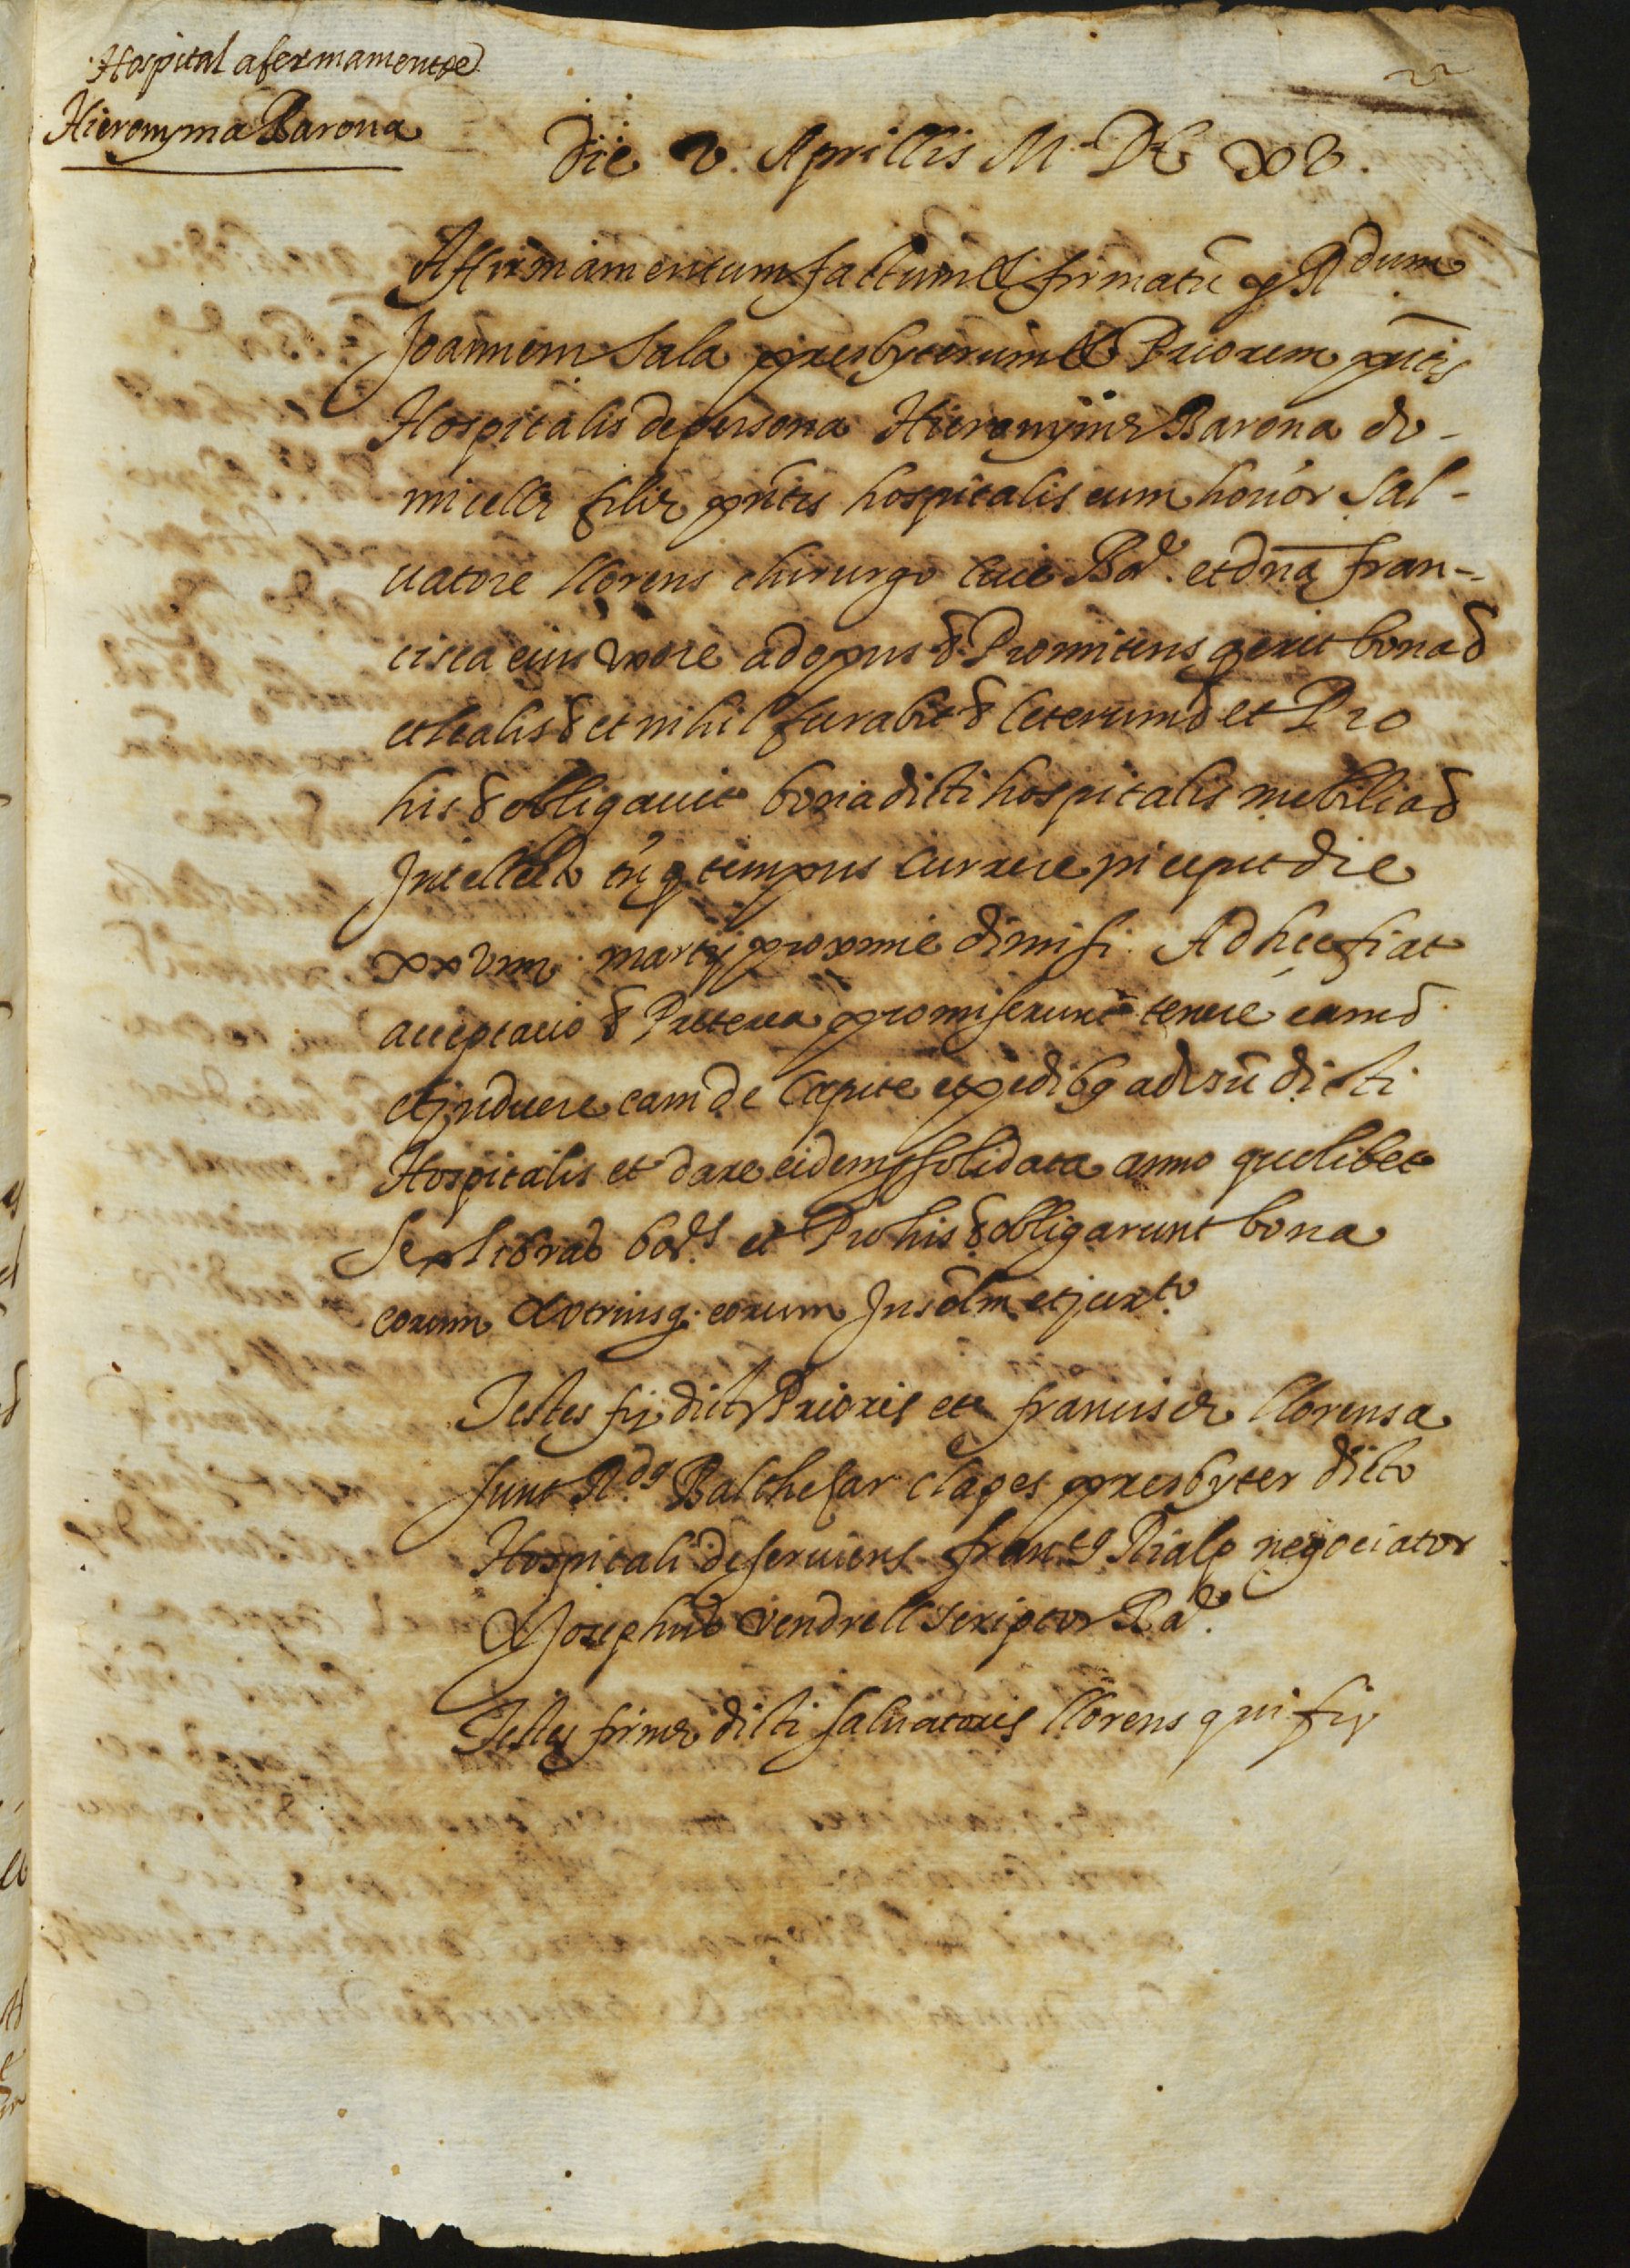 Hospital afermamentde
Hieronyma Barona
22
Die v. Aprillis M DC xv.
Affirmamentum factum & firmatũ p Rdum
Joannem Sala presbyterum & Priorem pñtis
Hospitalis de persona Hieronymę Barona do-
micellę filię pñtis hospitalis cum honor Sal-
uatore llorens chirurgo ciue Baͤ. et dña fran-
cisca eius vxore ad opus & Promitens q̃ erit bona &
et lealis & et nihil furabit & Ceterum & et Pro
his & obligauit bona dicti hospitalis mobilia &
Intellecto tñ q̃ tempus currere incepit die
xxviiii martij proxime dimisi. Ad hęc fiat
acceptacio & Preterea promiserunt tenere eam &
et induere eam de Capite et pedibꝫ ad vsũ dicti
Hospitalis et dare eidem p solidata anno quolibet
Sex libras bar.s et Pro his & obligarunt bona
eorum & vtriusq. eorum Insolm et jur.to
Testes fir dicti Prioris et francisce llorensa
sunt R.ds Balthesar Clapes presbyter dicto
Hospitali deseruiens fran.cꝰ Rialp negociator
& Josephus vendrell scriptor Ba.
Testes firmę dicti saluatoris llorens qui fir